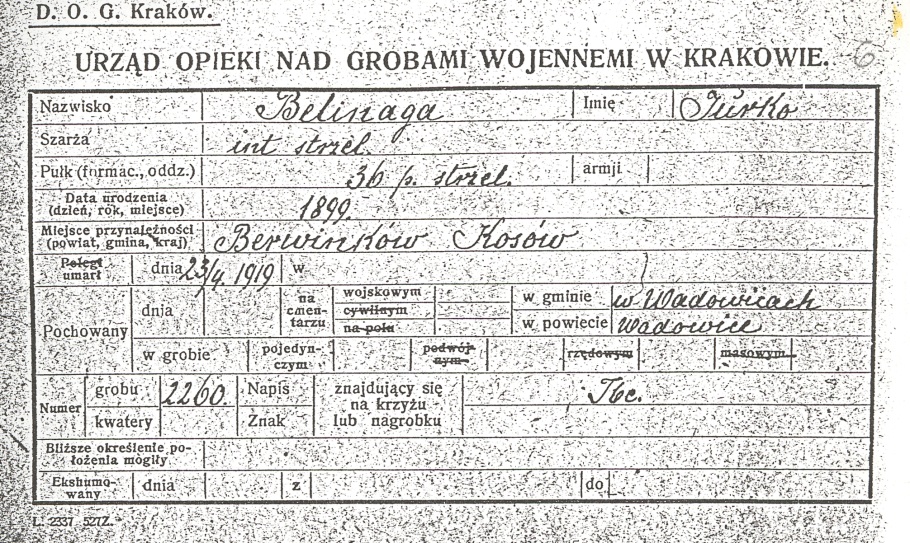 D. O. G. Kraków.
6
URZĄD OPIEKI NAD GROBAMI WOJENNEMI W KRAKOWIE.
Nazwisko Belinaga Imię Jurko
Szarża int strzel.
Pułk (formac., oddz.) 36 p. strzel. armji
Data urodzenia
(dzień, rok, miejsce) 1899.
Miejsce przynależności
(powiat, gmina, kraj) Berwinków Kosów
Poległ
umarł dnia 23/4. 1919 w
Pochowany dnia na cmen-tarzu wojskowym w gminie w Wadowicach
cywilnym
na polu w powiecie Wadowice
w grobie pojedyn-czym podwój-nym rzędowym masowym
Numer grobu 2260. Napis znajdujący się
na krzyżu Tbc.
kwatery Znak lub nagrobku
Bliższe określenie po-
łożenia mogiły
Ekshumo-
wany dnia z do
L. 2337 527Z.